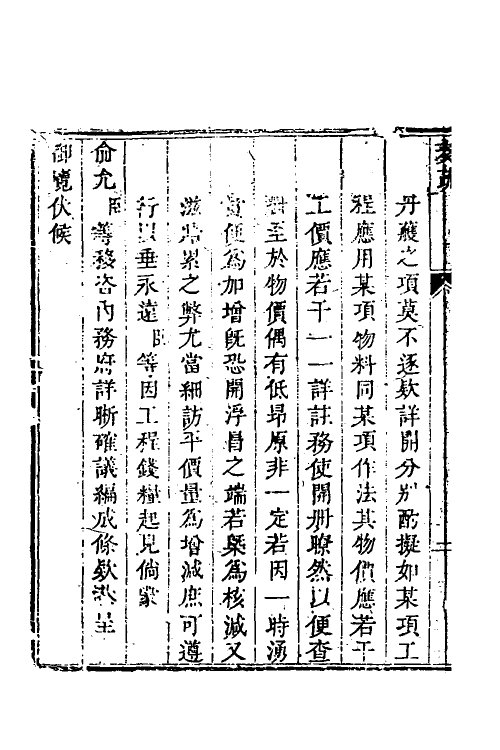 丹雘之項莫不逐欵詳開分别酌擬如某項工
程應用某項物料同某項作法其物價應若干
工價應若干一一詳註務使開册瞭然以便查
對至於物價偶有低昻原非一定若因一時湧
貴便爲加增旣恐開浮冒之端若槩爲核減又
滋賠累之弊尤當細訪平價量爲增減庶可遵
行以垂永遠臣等因工程錢糧起見倘蒙
俞允臣等移咨內務府詳晰確議編成條欵恭呈
御覽伏候
二